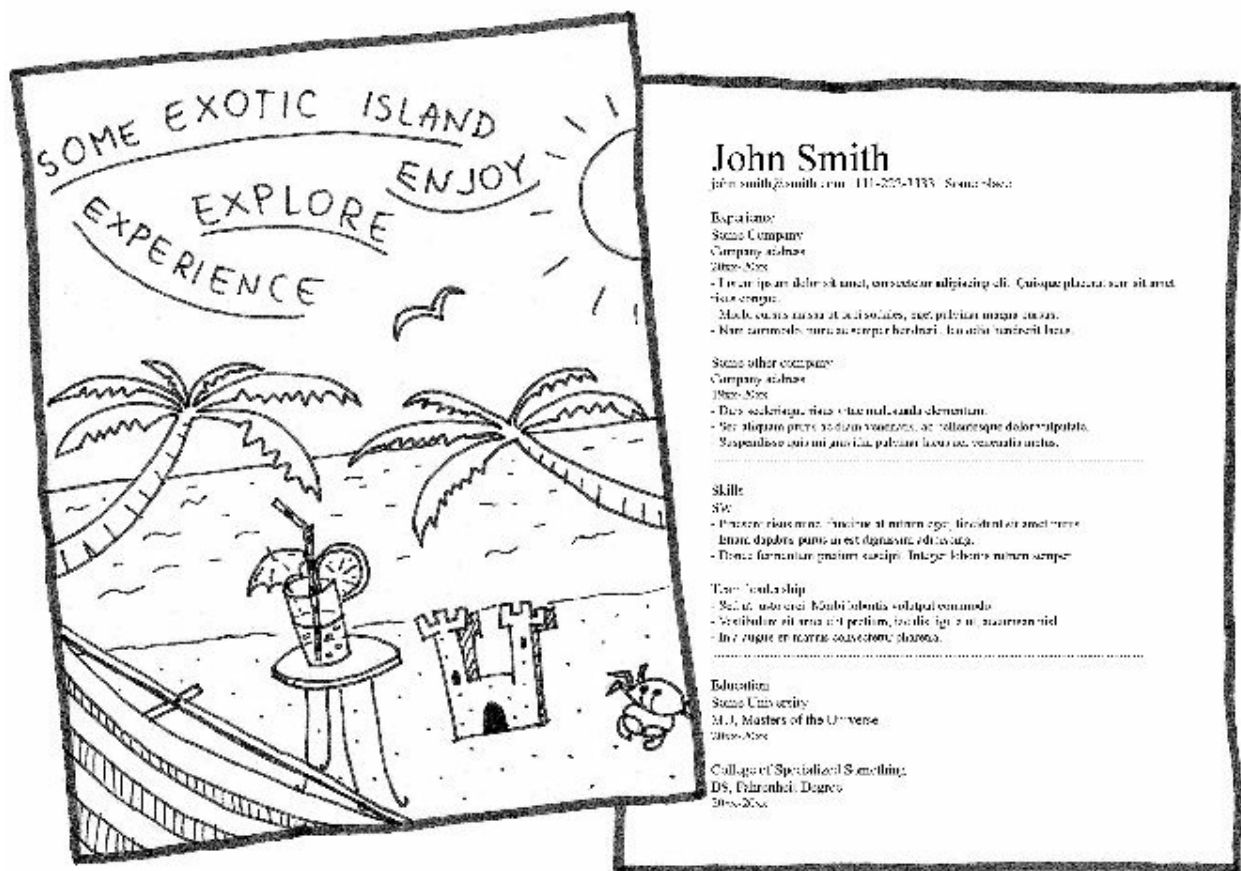 SOME EXOTIC ISLAND
ENJOY
EXPLORE
EXPERIENCE
John Smith
111-222-3333 Some place
Experience
Some Company
Company address
20xx-20xx
- Lorem ipsum dolor sit amet, consectetur adipiscing eli. Quisque placerat sem sit amet
risus congue.
Morbi cursus massa ut orci sodales, eget pulvinar magna cursus.
- Nam commodo nunc ac semper hendrerit
Some other company
Company address
19xx-20xx
- Duis scelerisque risus vitae malesuada elementum.
- Sed aliquam purus ac diam venenatis, ac pellentesque dolor vulputate.
Suspendisse quis mi gravida, pulvinar lacus nec, venenatis metus.
Skills
SW
- Praesent risus nunc, faucibus at rutrum eget, tincidunt sit amet purus
Etiam dapibus purus in est dignissim adipiscing.
- Donec fermentum pretium suscipit. Integer lobortis rutrum semper
Team leadership
- Sed ut justo orci. Morbi lobortis volutpat commodo
- Vestibulum sit amet elit pretium, iaculis ligula ut, accumsan nisl
- In augue et mauris consectetur pharetra.
Education
Some University
M.U, Masters of the Universe
20xx-20xx
College of Specialized Something
DS, Fahrenheit Degree
20xx-20xx